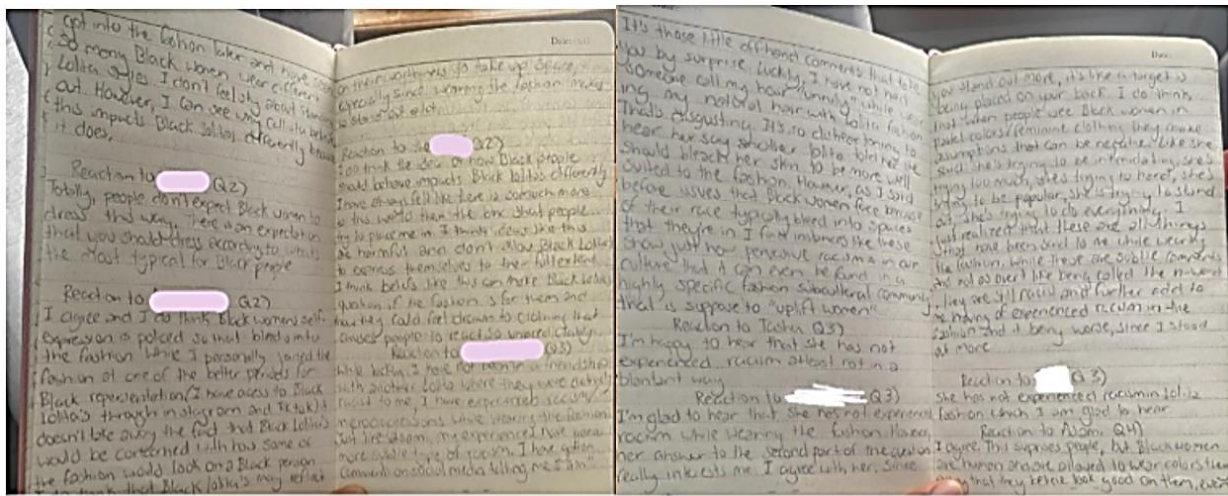 got into the fashion later and have seen
so many Black women wear different
Lolita styles I don't feel shy about standing
out. However, I can see why
this impacts Black lolitas differently
it does.
Reaction to Q2)
Totally, people don't expect Black women to
dress this way. There is an expectation
that you should dress according to what is
the most typical for Black people
Reaction to Q2)
I agree and I do think Black women's self-
expression is policed so that bleeds into
the fashion. While I personally joined the
fashion at one of the better periods for
Black representation (I have access to Black
lolita's through instagram and tiktok) it
doesn't take away the fact that Black lolita's
would be concerned with how some of
the fashion would look on a Black person
Black lolita's may reflect
on their worthiness to take up space,
especially since wearing the fashion makes
us stand out a lot.
Reaction to Q2)
I do think the idea of how Black people
should behave impacts Black lolitas differently
I have always felt like there is so much more
to this world than the box that people
try to place me in. I think ideas like this
are harmful and don't allow Black lolitas
to express themselves to their full extent
I think beliefs like this can make Black lolitas
question if the fashion is for them and
how they could feel drawn to clothing that
causes people to react so
Reaction to Q3)
While I have not been in a friendship
with another lolita where they were
racist to me, I have experienced racism/
microaggressions while wearing the fashion.
Just like my experiences have been
more subtle type of racism. I have gotten
comments on social media telling me I am
It's those little offhand comments that take
you by surprise. Luckily, I have not had
someone call my hair "unruly" while wear
ing my natural hair with lolita fashion
That's disgusting. It's so disheartening to
hear her say another lolita told her she
should bleach her skin to be more well
suited to the fashion. However, as I said
before issues that Black women face because
of their race typically bleed into spaces
that they're in I find instances like these
show just how pervasive racism is in our
culture that it can even be found in a
highly specific fashion subcultural community
that is suppose to "uplift women"
Reaction to Q3)
I'm happy to hear that she has not
experienced racism atleast not in a
blantant way
Reaction to Q3)
I'm glad to hear that she has not experience
racism while wearing the fashion. However,
her answer to the second part of the question
really interests me. I agree with her. Since
you stand out more, it's like a target is
being placed on your back. I do think
that when people see Black women in
colors/feminine clothing they make
assumptions that can be negative. Like she
said she's trying to be intimidating, she's
trying too much, she's trying to be
trying to be popular, she is trying to stand
out, she's trying to do everything. I
just realized that these are all things
that have been said to me while wearing
the fashion. While these are subtle comments
and not as overt like being called the n-word
they are still racist and further add to
me having experienced racism in the
fashion and it being worse, since I stand
out more.
Reaction to Q3)
She has not experienced racism in lolita
fashion which I am glad to hear
Reaction to Q4)
I agree. This suprises people, but Black women
are human and are allowed to wear colors
that they believe look good on them, even